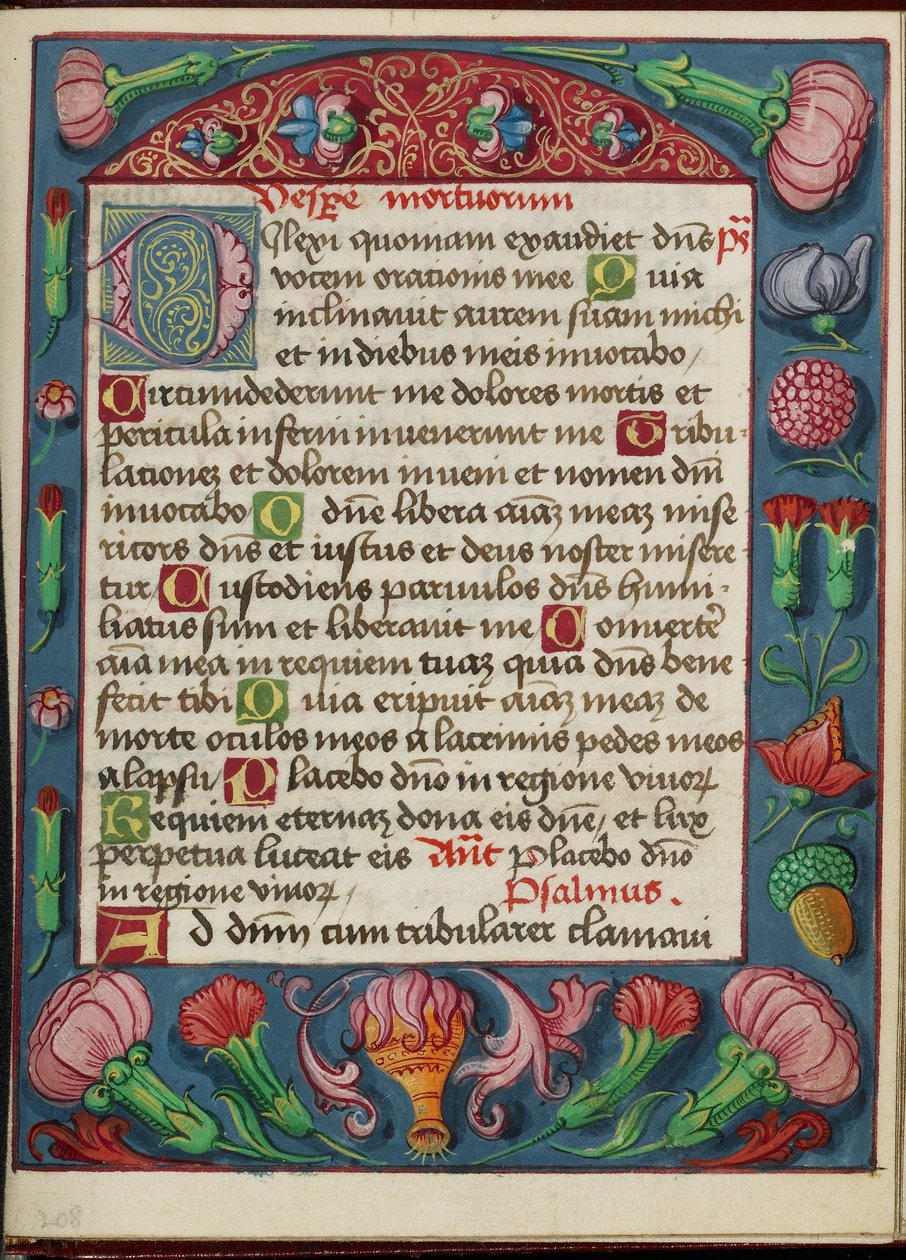 Vesꝑe mortuorum
Dilexi quoniam exaudiet dn̄s ps̄
vocem orationis mee Quia
inclinavit aurem suam michi
et in diebus meis invocabo /
Circumdederunt me dolores mortis et
pericula inferni invenerunt me Tribu-
lationeʒ et dolorem inveni et nomen dn̄i
invocabo O dn̄e libera aīaʒ meaʒ mise
ricors dn̄s et iustus et deus noster misere-
tur Custodiens parvulos dn̄s humi-
liatus sum et liberavit me Convertēre
aīa mea in requiem tuaʒ quia dn̄s bene-
fecit tibi Quia eripuit aīaʒ meaʒ de
morte oculos meos a lacrimis pedes meos
a lapsu / Placebo dn̄o in regione vivoꝝ
Requiem eternaʒ dona eis dn̄e / et lux
perpetua luceat eis An̄t Placebo dn̄o
in regione vivoꝝ / Psalmus .
Ad dn̄m cum tribularer clamavi
208